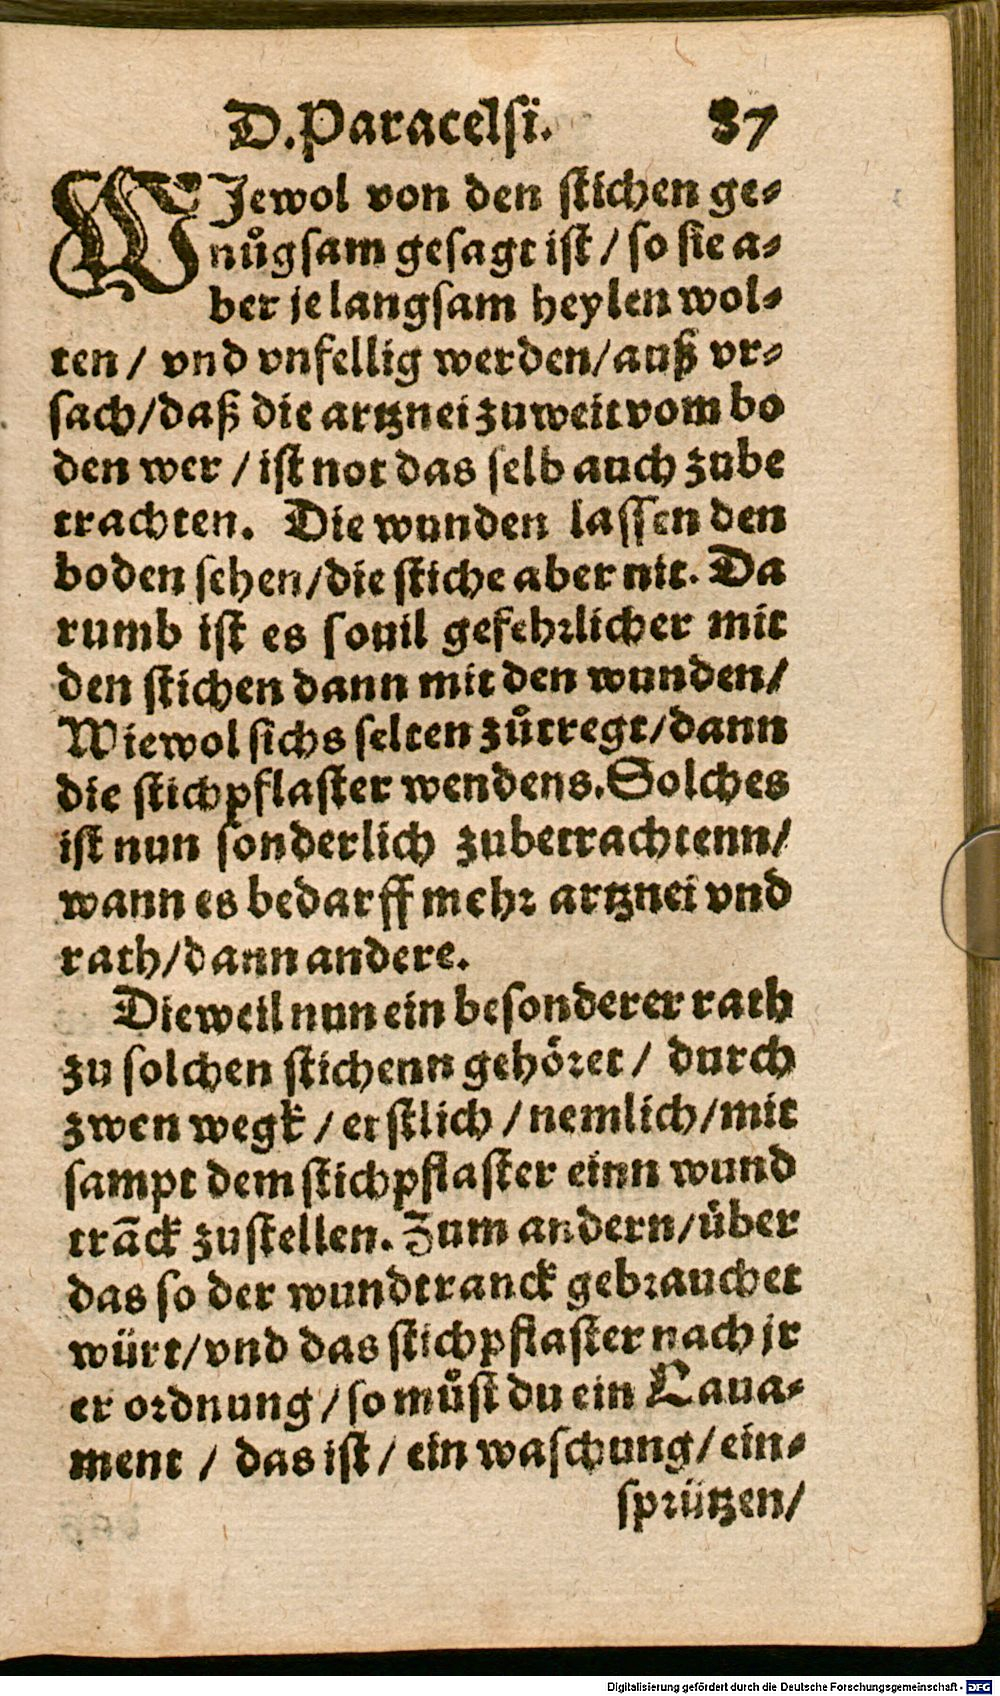 D. Paracelsi. 37
WJewol von den stichen ge-
nůgsam gesagt ist / so sie a-
ber je langsam heylen wol-
ten / vnd vnfellig werden/auß vr-
sach/daß die artznei zuweit vom bo
den wer / ist not das selb auch zube
trachten. Die wunden lassen den
boden sehen/die stiche aber nit. Da
rumb ist es souil gefehrlicher mit
den stichen dann mit den wunden/
Wiewol sichs selten zůtregt/dann
die stichpflaster wendens. Solches
ist nun sonderlich zubetrachtenn/
wann es bedarff mehr artznei vnd
rath/dann andere.
Dieweil nun ein besonderer rath
zu solchen stichenn gehöret / durch
zwen wegk / erstlich / nemlich/mit
sampt dem stichpflaster einn wund
trāck zustellen. Zum andern/über
das so der wundtranck gebrauchet
würt/vnd das stichpflaster nach jr
er ordnung / so můst du ein Laua-
ment / das ist / ein waschung/ein-
sprützen/
Digitalisierung gefördert durch die Deutsche Forschungsgemeinschaft - DFG